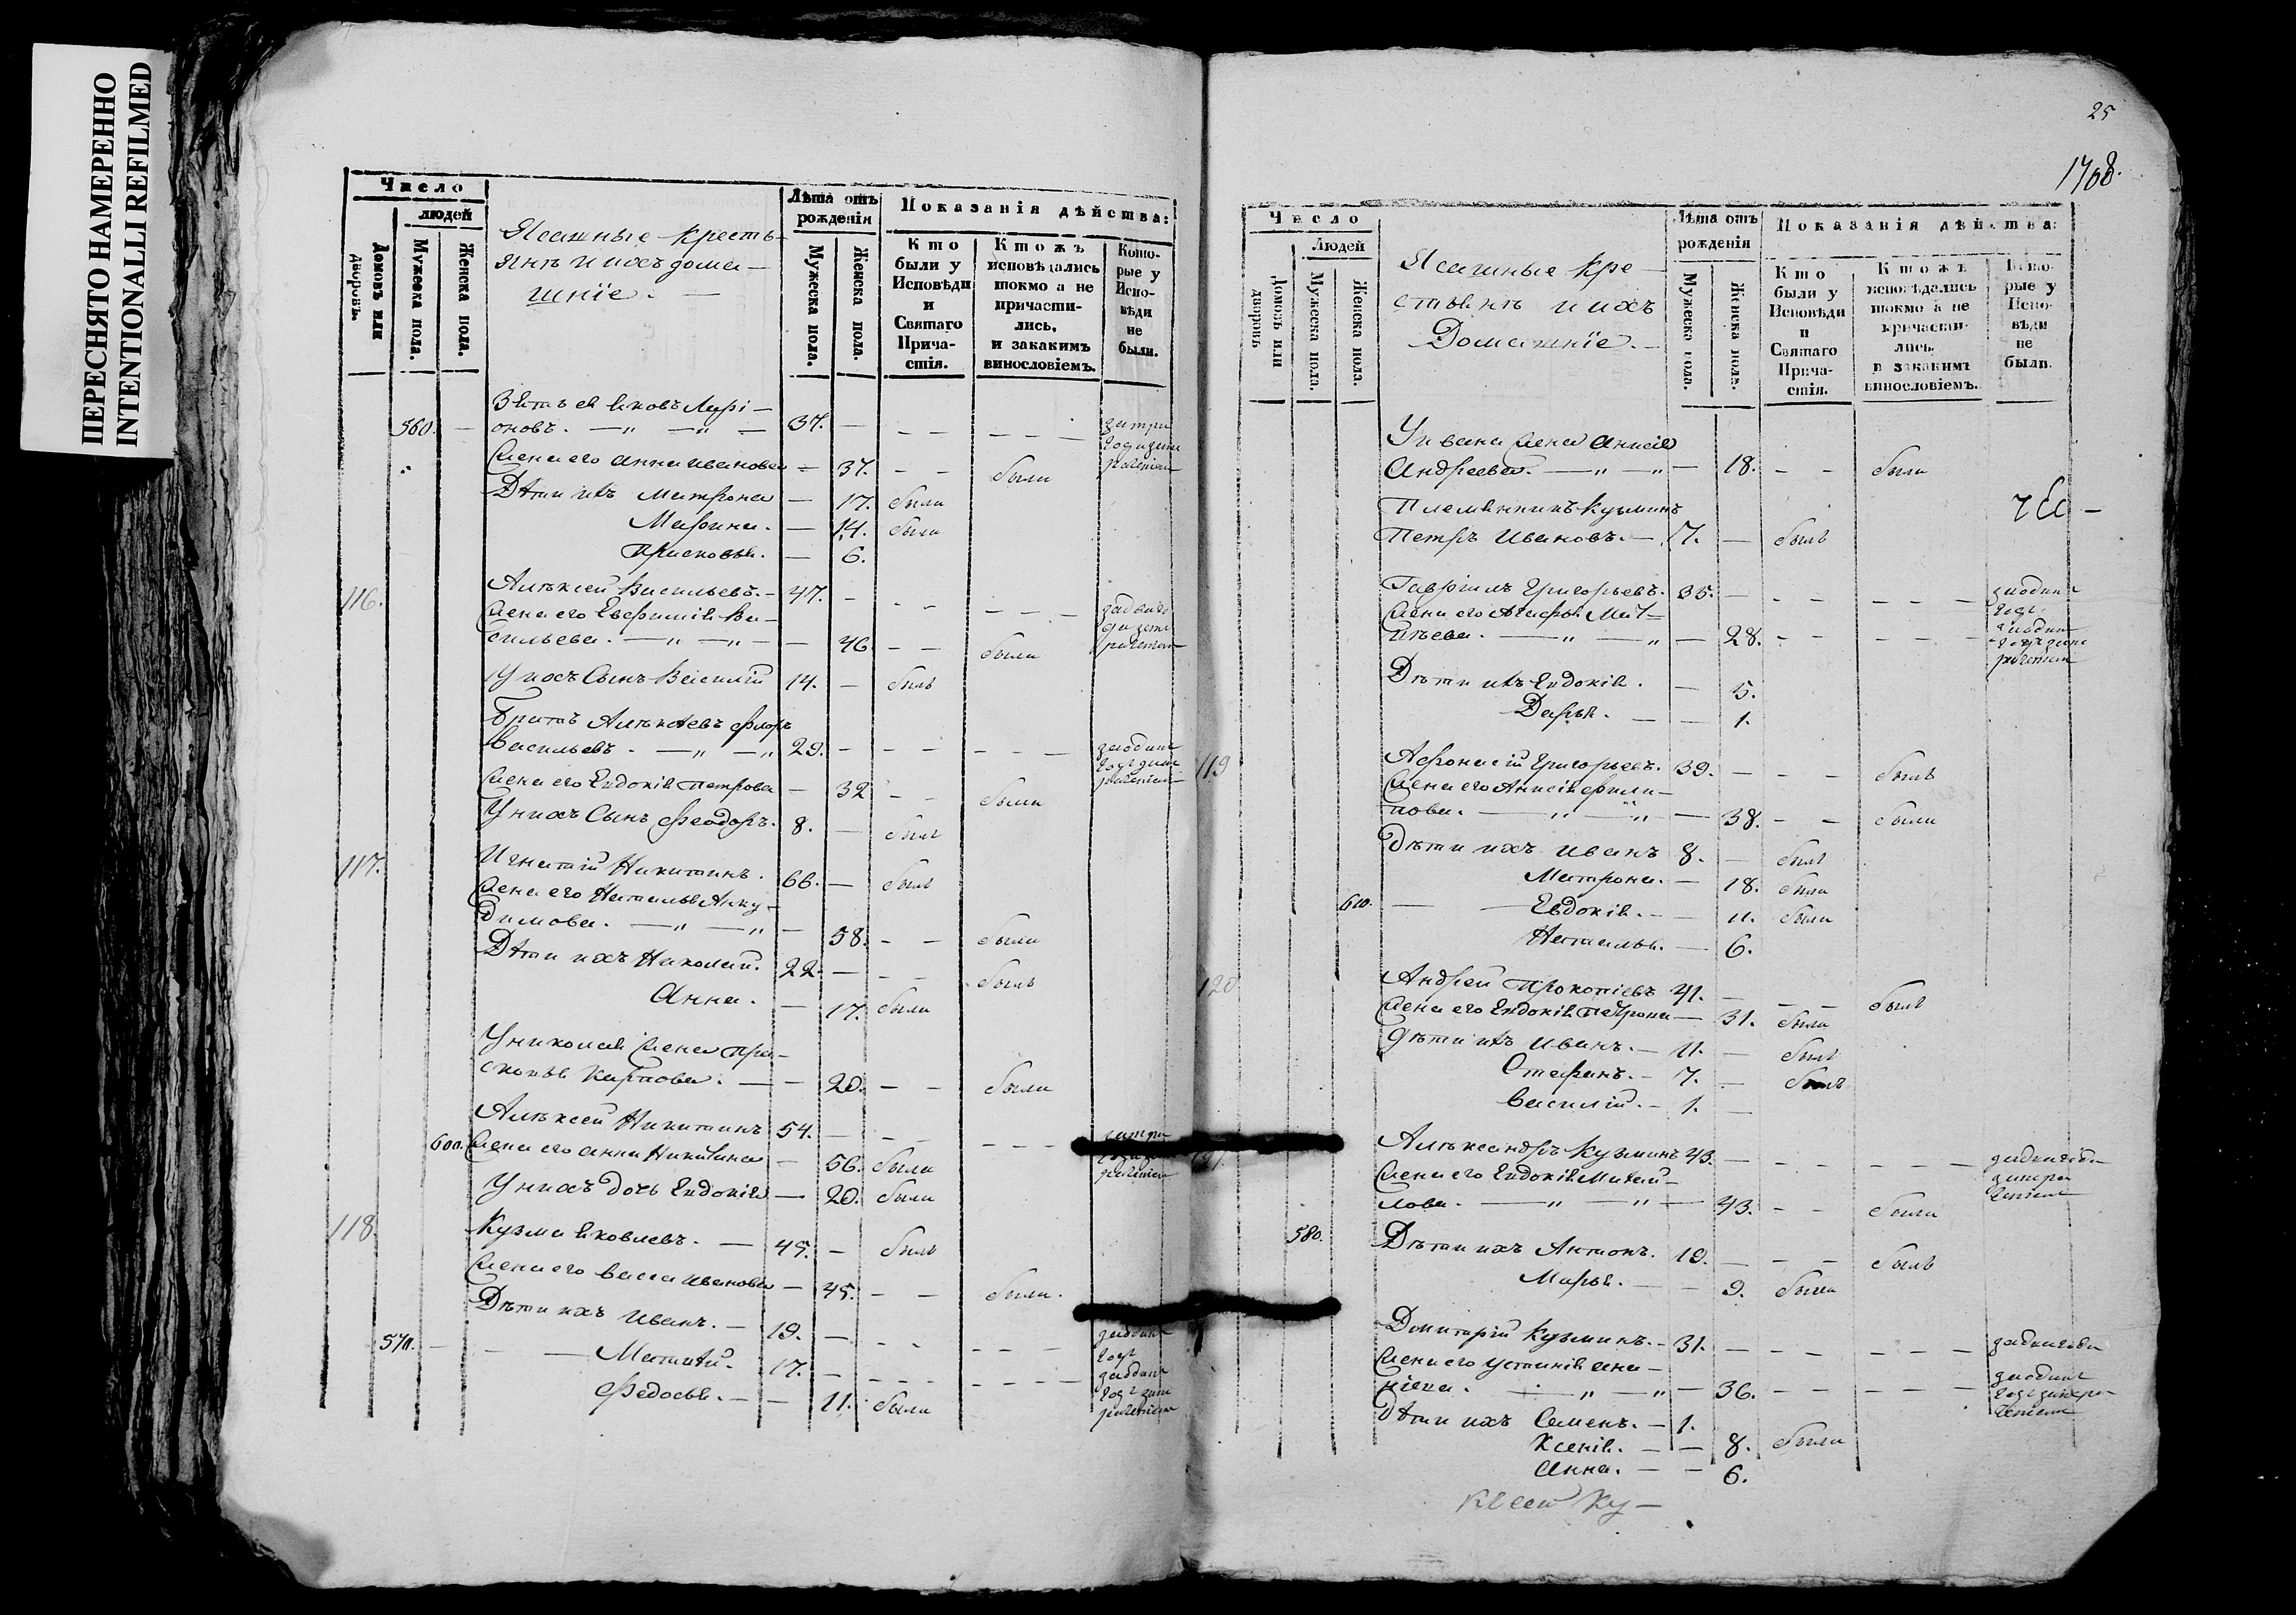 ПЕРЕСНЯТО НАМЕРЕННО
INTENTIONALLI REFILMED
Число
людей
Домовъ или дворовъ.
Мужеска пола.
Женска пола.
Ясашные кресть-
янъ и ихъ дома-
шнїе. —
Лѣта отъ рожденія
Мужеска пола.
Женска пола.
Показанія дѣйства:
Кто были у Исповѣди и Святаго Прича-стія.
Ктожъ исповѣдались токмо а не причасти-лись, и закакимъ винословіемъ.
Кото-рые у Испо-вѣди не были.
Зять ей Яковъ Лари-
560. — оновъ. — „ — „ — 37. —
Жена его Анна Иванова — 37. — — были
Дѣти ихъ Матрона — 17. были
Марина. — 14. были
Присковья. — 6.
116. Алексей Васильевъ. — 47. —
Жена его Евфимія Ва-
сильева. — „ — „ — 46 — — были
У ихъ Сынъ Василій 14. — былъ
Братъ Алексѣевъ Флоръ
Васильевъ. — „ — „ 29. —
Жена его Евдокія Петрова — 32 — — были
У нихъ Сынъ Феодоръ. 8. — былъ
117. Игнатій Никитинъ. 66. — былъ
Жена его Наталья Анку-
димова. — „ — „ — 58. — — были
Дѣти ихъ Николай. 22. — — — былъ
Анна. — 17. были
У Николая Жена Пра-
сковья Карпова. — — 20. — — были
Алексей Никитинъ 54. —
600. Жена его Анна Никитина — 56. были
У нихъ дочь Евдокія — 20. были
118. Кузма Яковлевъ. — 45. — былъ
Жена его Васса Иванова — 45. — — были.
Дѣти ихъ Иванъ. — 19. —
570. — — — Матвей. 17. —
Федосья. — — 11. были
25
1708.
Число
Людей
Домовъ или дворовъ
Мужеска пола.
Женска пола.
Ясашные кре-
стьянъ и ихъ
Домашнїе. —
Лѣта отъ рожденія
Мужеска пола.
Женска пола.
Показанія дѣйства:
Кто были у Исповѣди и Святаго Прича-стія.
Ктожъ исповѣдались токмо а не причасти-лись, и закакимъ винословіемъ.
Кото-рые у Испо-вѣди не были.
У Ивана Жена Анисія
Андреева. — „ — „ — 18. — — были
Племянникъ Кузминъ
Петръ Ивановъ. — 7. — былъ
Гаврилъ Григорьевъ. 35. —
Жена его Агафья Мат-
вѣева. — „ — „ — 28. — —
Дѣти ихъ Евдокія. — 5.
Дарья. — — 1.
119 Афонасій Григорьевъ. 39. — — — былъ
Жена его Анисія Фили-
пова. — „ — „ — 38. — — были
Дѣти ихъ Иванъ 8. — былъ
Матрона. — 18. были
610. — — Евдокія. — — 11. были
Наталья. — 6.
120 Андрей Прокопіевъ 41. — — — былъ
Жена его Евдокія Петрова — 31. были
Дѣти ихъ Иванъ. — 11. — былъ
Стефанъ. — 7. — былъ
Василій. — 1. —
121. Александръ Кузминъ 43. —
Жена его Евдокія Михай-
лова. — „ — „ — 43. — — были
580. Дѣти ихъ Антонъ. 19. — — — былъ
Марья. — — 9. были
Дмитрій Кузминъ. — 31. —
Жена его Устинія Ана-
ніева. — „ — „ — 36. — —
Дѣти ихъ Семенъ. — 1.
Ксенія. — — 8. были
Анна. — — 6.